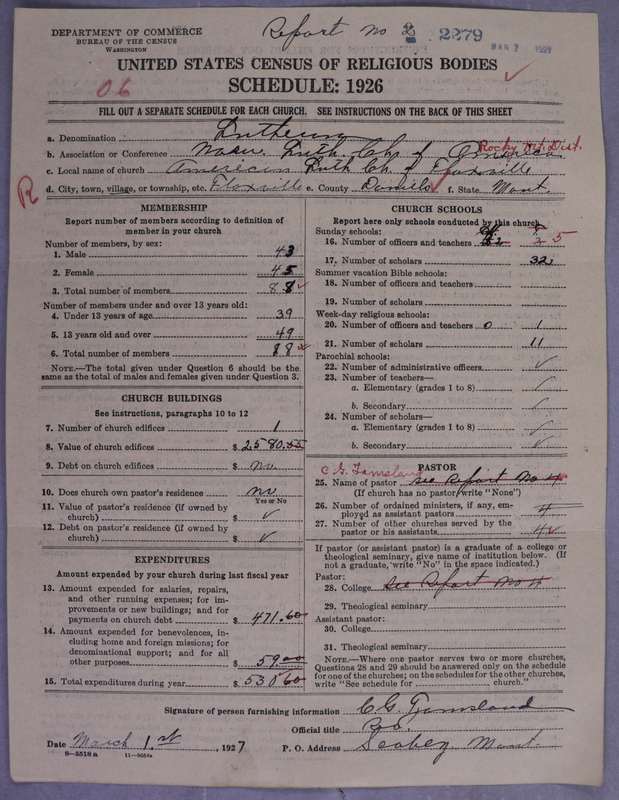 DEPARTMENT OF COMMERCE
BUREAU OF THE CENSUS
WASHINGTON
Report no 2
2279
MAR 7 1927
UNITED STATES CENSUS OF RELIGIOUS BODIES
SCHEDULE: 1926
06
FILL OUT A SEPARATE SCHEDULE FOR EACH CHURCH. SEE INSTRUCTIONS ON THE BACK OF THIS SHEET
a. Denomination Lutheran
b. Association or Conference Norw. Luth. Ch. of America Rocky Mt. Dist.
c. Local name of church American Luth Ch. of Flaxville
R
d. City, town, village, or township, etc. Flaxville e. County Daniels f. State Mont.
MEMBERSHIP
Report number of members according to definition of
member in your church
Number of members, by sex:
1. Male 43
2. Female 45
3. Total number of members 88
Number of members under and over 13 years old:
4. Under 13 years of age 39
5. 13 years old and over 49
6. Total number of members 88
NOTE.—The total given under Question 6 should be
same as the total of males and females given under Question 3.
CHURCH BUILDINGS
See instructions, paragraphs 10 to 12
7. Number of church edifices 1
8. Value of church edifices $ 2580.55
9. Debt on church edifices $ no
10. Does church own pastor's residence no
Yes or No
11. Value of pastor's residence (if owned by
church) $ ✓
12. Debt on pastor's residence (if owned by
church) $ ✓
EXPENDITURES
Amount expended by your church during last fiscal year
13. Amount expended for salaries, repairs,
and other running expenses; for im-
provements or new buildings; and for
payments on church debt $ 471.60
14. Amount expended for benevolences, in-
cluding home and foreign missions; for
denominational support; and for all
other purposes $ 59.00
15. Total expenditures during year $ 530.60
CHURCH SCHOOLS
Report here only schools conducted by this church
Sunday schools:
16. Number of officers and teachers 5
17. Number of scholars 32
Summer vacation Bible schools:
18. Number of officers and teachers
19. Number of scholars
Week-day religious schools:
20. Number of officers and teachers 0 1
21. Number of scholars 11
Parochial schools:
22. Number of administrative officers ✓
23. Number of teachers—
a. Elementary (grades 1 to 8) ✓
b. Secondary ✓
24. Number of scholars—
a. Elementary (grades 1 to 8) ✓
b. Secondary ✓
PASTOR
C G Tamsland
25. Name of pastor see Report No 4
(If church has no pastor, write "None")
26. Number of ordained ministers, if any, em-
ployed as assistant pastors
27. Number of other churches served by the
pastor or his assistants 4
If pastor (or assistant pastor) is a graduate of a college or
theological seminary, give name of institution below. (If
not a graduate, write "No" in the space indicated.)
Pastor:
28. College See Report No 4
29. Theological seminary
Assistant pastor:
30. College
31. Theological seminary
NOTE.—Where one pastor serves two or more churches,
Questions 28 and 29 should be answered only on the schedule
for one of the churches; on the schedules for the other churches,
write "See schedule for church."
Signature of person furnishing information C. G. Tamsland
Official title
Date March 1.st, 1927 P. O. Address Scobey Mont.
8—5518a 11—9054a